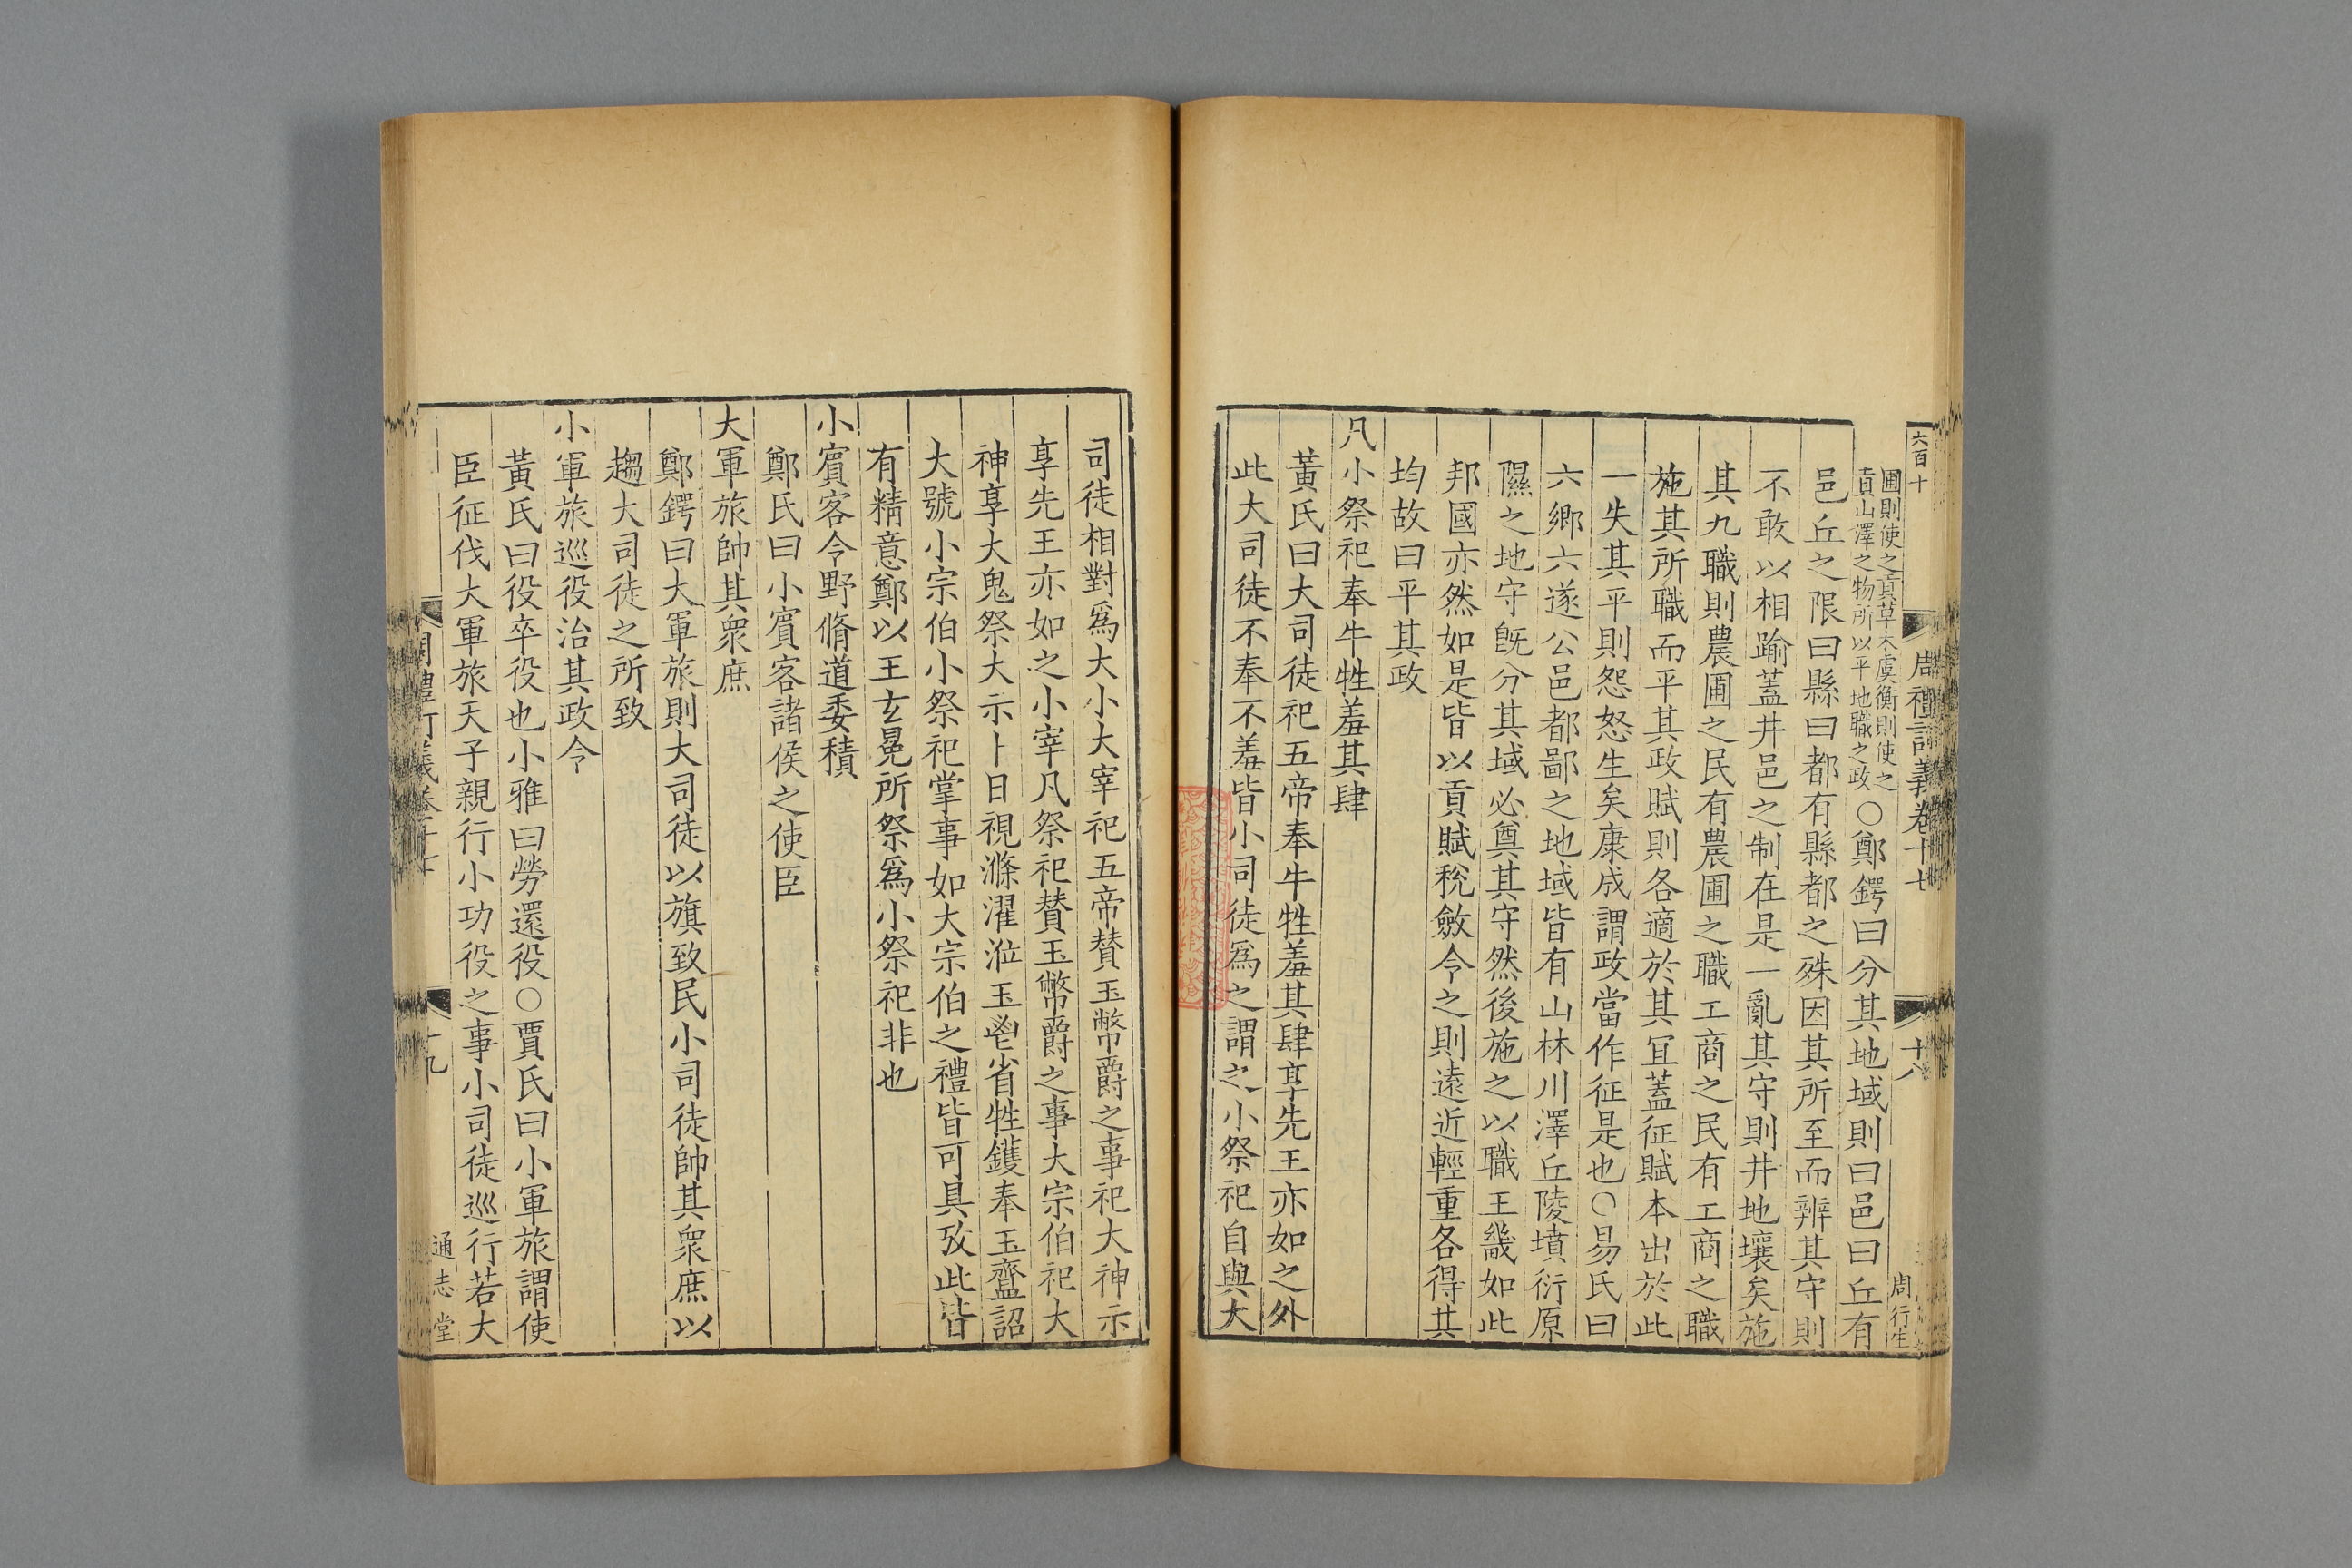 六百十
周禮訂義卷十七
十八
周行生
圃則使之貢草木虞衡則使之
貢山澤之物所以平地職之政
○鄭鍔曰分其地域則曰邑曰丘有
邑丘之限曰縣曰都有縣都之殊因其所至而辨其守則
不敢以相踰蓋井邑之制在是一亂其守則井地壞矣施
其九職則農圃之民有農圃之職工商之民有工商之職
施其所職而平其政賦則各適於其宜蓋征賦本出於此
一失其平則怨怒生矣康成謂政當作征是也○易氏曰
六鄉六遂公邑都鄙之地域皆有山林川澤丘陵墳衍原
隰之地守旣分其域必奠其守然後施之以職王畿如此
邦國亦然如是皆以貢賦稅斂令之則遠近輕重各得其
均故曰平其政
凡小祭祀奉牛牲羞其肆
黃氏曰大司徒祀五帝奉牛牲羞其肆享先王亦如之外
此大司徒不奉不羞皆小司徒爲之謂之小祭祀自與大
司徒相對爲大小大宰祀五帝賛玉幣爵之事祀大神示
享先王亦如之小宰凡祭祀賛玉幣爵之事大宗伯祀大
神享大鬼祭大示卜日視滌濯涖玉鬯省牲鑊奉玉齍詔
大號小宗伯小祭祀掌事如大宗伯之禮皆可具攷此皆
有精意鄭以王玄冕所祭爲小祭祀非也
小賓客令野脩道委積
鄭氏曰小賓客諸侯之使臣
大軍旅帥其衆庶
鄭鍔曰大軍旅則大司徒以旗致民小司徒帥其衆庶以
趨大司徒之所致
小軍旅巡役治其政令
黃氏曰役卒役也小雅曰勞還役○賈氏曰小軍旅謂使
臣征伐大軍旅天子親行小功役之事小司徒巡行若大
周禮訂義卷十七
十九
通志堂